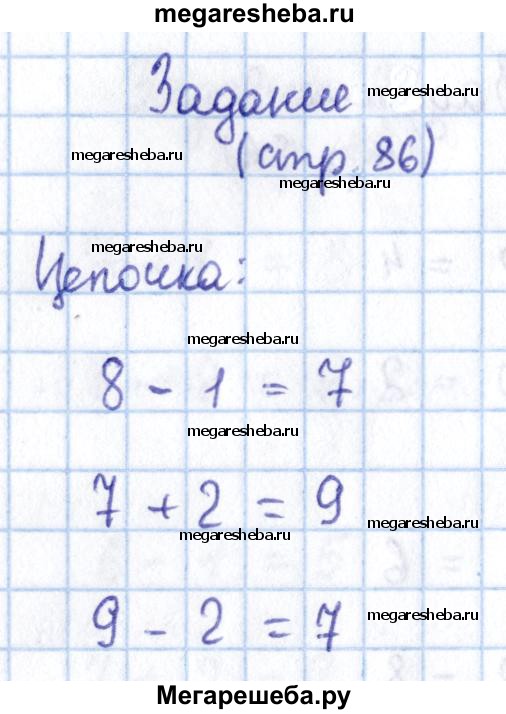 megaresheba.ru
Задание
megaresheba.ru
megaresheba.ru
(стр. 86)
megaresheba.ru
megaresheba.ru
Цепочка:
megaresheba.ru
8 - 1 = 7
megaresheba.ru
7 + 2 = 9
megaresheba.ru
megaresheba.ru
9 - 2 = 7
megaresheba.ru
Мегарешеба.ру